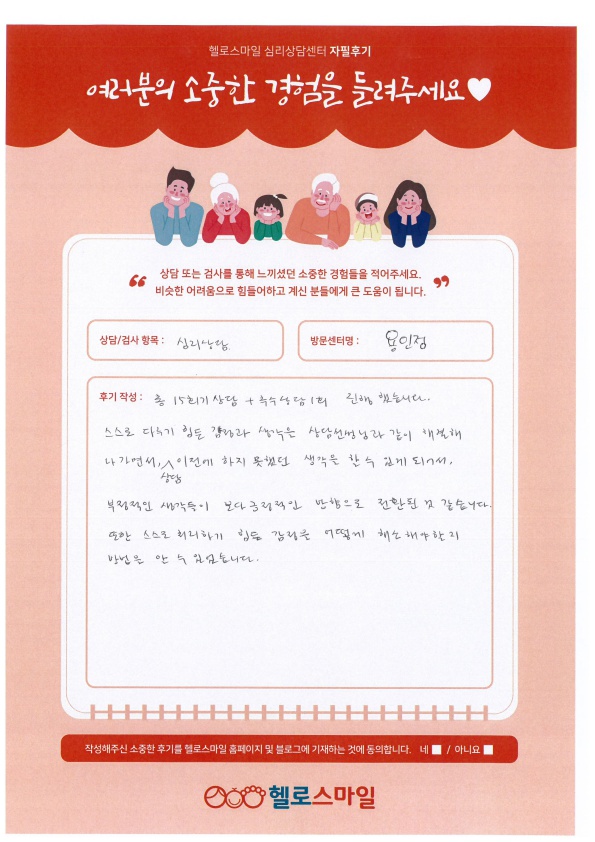 헬로스마일 심리상담센터 자필후기
여러분의 소중한 경험을 들려주세요
“ 상담 또는 검사를 통해 느끼셨던 소중한 경험들을 적어주세요.
비슷한 어려움으로 힘들어하고 계신 분들에게 큰 도움이 됩니다. ”
상담/검사 항목 : 심리상담.
방문센터명 : 용인점
후기 작성 : 총 15회기 상담 + 추수상담 1회 진행 했습니다.
스스로 다루기 힘든 감정과 생각은 상담선생님과 같이 해결해
나가면서, 상담 이전에 하지 못했던 생각을 할 수 있게 되어서,
부정적인 생각들이 보다 긍정적인 방향으로 전환된 것 같습니다.
또한 스스로 처리하기 힘든 감정을 어떻게 해소해야 한지
방법을 알 수 있었습니다.
작성해주신 소중한 후기를 헬로스마일 홈페이지 및 블로그에 기재하는 것에 동의합니다. 네 / 아니요
헬로스마일